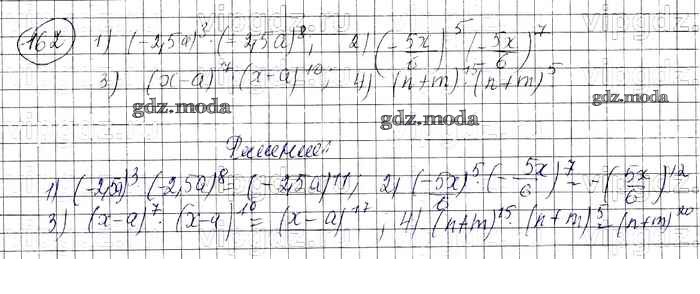 162 1) (-2,5a)³·(-2,5a)⁸; 2) (-5x/6)⁵·(-5x/6)⁷
3) (x-a)⁷·(x-a)¹⁰; 4) (n+m)¹⁵·(n+m)⁵
gdz.moda gdz.moda gdz.moda
Решение:
1) (-2,5a)³·(-2,5a)⁸=(-2,5a)¹¹; 2) (-5x/6)⁵·(-5x/6)⁷=-(5x/6)¹²
3) (x-a)⁷·(x-a)¹⁰=(x-a)¹⁷, 4) (n+m)¹⁵·(n+m)⁵=(n+m)²⁰